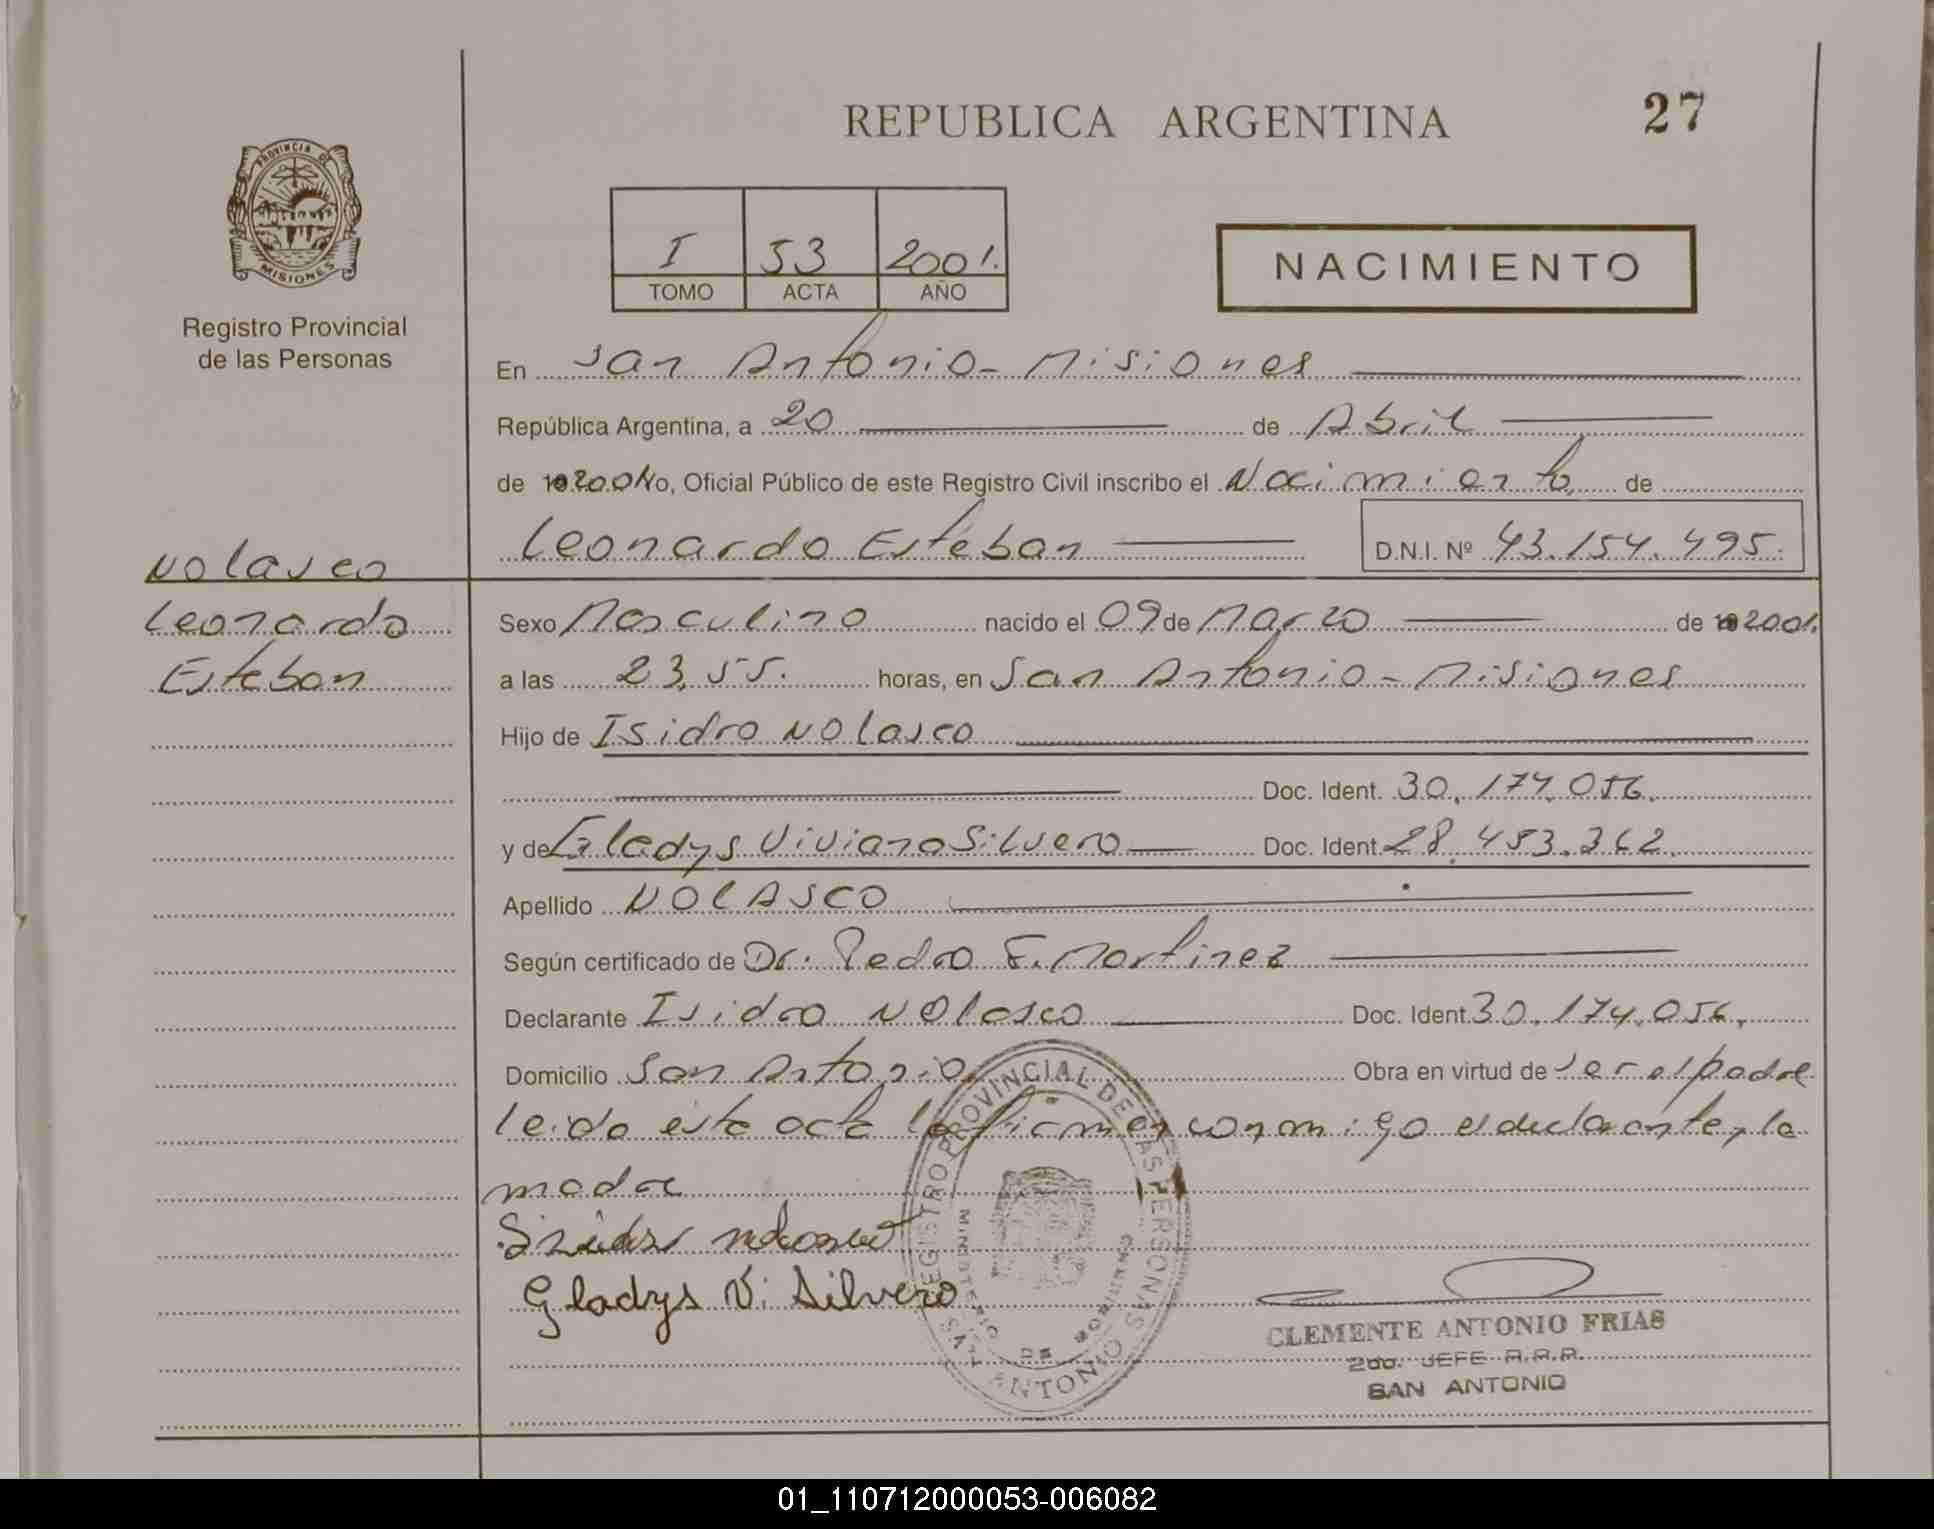 REPUBLICA ARGENTINA
27
PROVINCIA DE
MISIONES
Registro Provincial
de las Personas
I 53 2001.
TOMO ACTA AÑO
NACIMIENTO
En San Antonio - Misiones
República Argentina, a 20 de Abril
de 2001 Yo, Oficial Público de este Registro Civil inscribo el Nacimiento de
Leonardo Esteban D.N.I. Nº 43.154.495.
Nolasco
Leonardo
Esteban
Sexo Masculino nacido el 09 de Marzo de 2001.
a las 23,55. horas, en San Antonio - Misiones
Hijo de Isidro Nolasco
Doc. Ident. 30.174.056.
y de Gladys Viviana Silvero Doc. Ident. 28.453.362.
Apellido NOLASCO
Según certificado de Dr. Pedro F. Martinez
Declarante Isidro Nolasco Doc. Ident. 30.174.056.
Domicilio San Antonio Obra en virtud de ser el padre
leida esta acta la firman conmigo el declarante, la
madre
Gladys V. Silvero
REGISTRO PROVINCIAL DE LAS PERSONAS
MINISTERIO DE GOBIERNO
SAN ANTONIO
CLEMENTE ANTONIO FRIAS
2do. JEFE R.P.P.
SAN ANTONIO
01_110712000053-006082